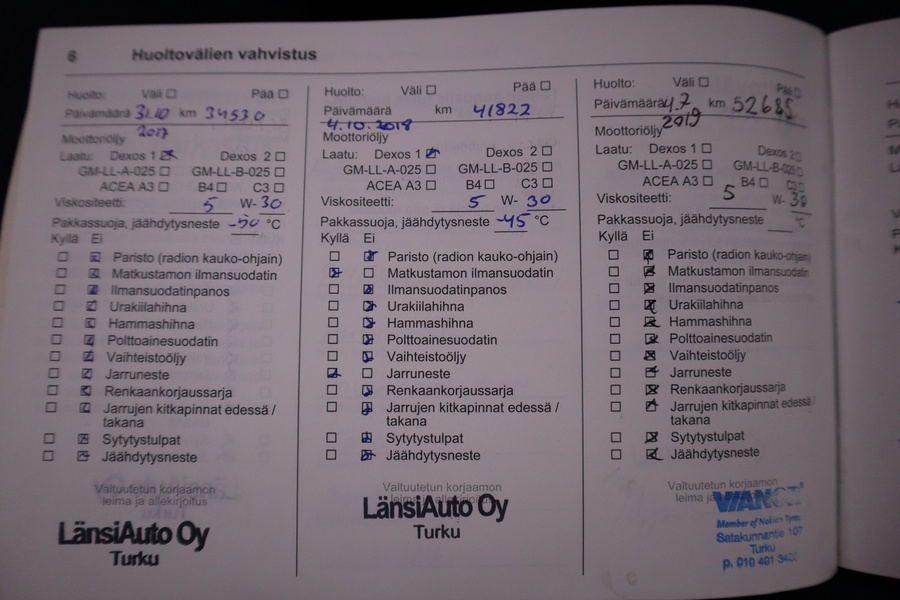 6 Huoltovälien vahvistus
Huolto: Väli Pää
Päivämäärä 31.10 km 34530
2017
Moottoriöljy
Laatu: Dexos 1 Dexos 2
GM-LL-A-025 GM-LL-B-025
ACEA A3 B4 C3
Viskositeetti: 5 W-30
Pakkassuoja, jäähdytysneste -50 °C
Kyllä Ei
Paristo (radion kauko-ohjain)
Matkustamon ilmansuodatin
Ilmansuodatinpanos
Urakiilahihna
Hammashihna
Polttoainesuodatin
Vaihteistoöljy
Jarruneste
Renkaankorjaussarja
Jarrujen kitkapinnat edessä /
takana
Sytytystulpat
Jäähdytysneste
Valtuutetun korjaamon
leima ja allekirjoitus
LänsiAuto Oy
Turku
Huolto: Väli Pää
Päivämäärä km 41822
4.10.2018
Moottoriöljy
Laatu: Dexos 1 Dexos 2
GM-LL-A-025 GM-LL-B-025
ACEA A3 B4 C3
Viskositeetti: 5 W- 30
Pakkassuoja, jäähdytysneste -45 °C
Kyllä Ei
Paristo (radion kauko-ohjain)
Matkustamon ilmansuodatin
Ilmansuodatinpanos
Urakiilahihna
Hammashihna
Polttoainesuodatin
Vaihteistoöljy
Jarruneste
Renkaankorjaussarja
Jarrujen kitkapinnat edessä /
takana
Sytytystulpat
Jäähdytysneste
Valtuutetun korjaamon
LänsiAuto Oy
Turku
Huolto: Väli Pää
Päivämäärä 4.7 km 52685
2019
Moottoriöljy
Laatu: Dexos 1 Dexos 2
GM-LL-A-025 GM-LL-B-025
ACEA A3 B4 C3
Viskositeetti: 5 W- 30
Pakkassuoja, jäähdytysneste °C
Kyllä Ei
Paristo (radion kauko-ohjain)
Matkustamon ilmansuodatin
Ilmansuodatinpanos
Urakiilahihna
Hammashihna
Polttoainesuodatin
Vaihteistoöljy
Jarruneste
Renkaankorjaussarja
Jarrujen kitkapinnat edessä /
takana
Sytytystulpat
Jäähdytysneste
Valtuutetun korjaamon
leima ja
VIANOR
Member of Nokian Tyres
Satakunnantie 107
Turku
p. 010 401